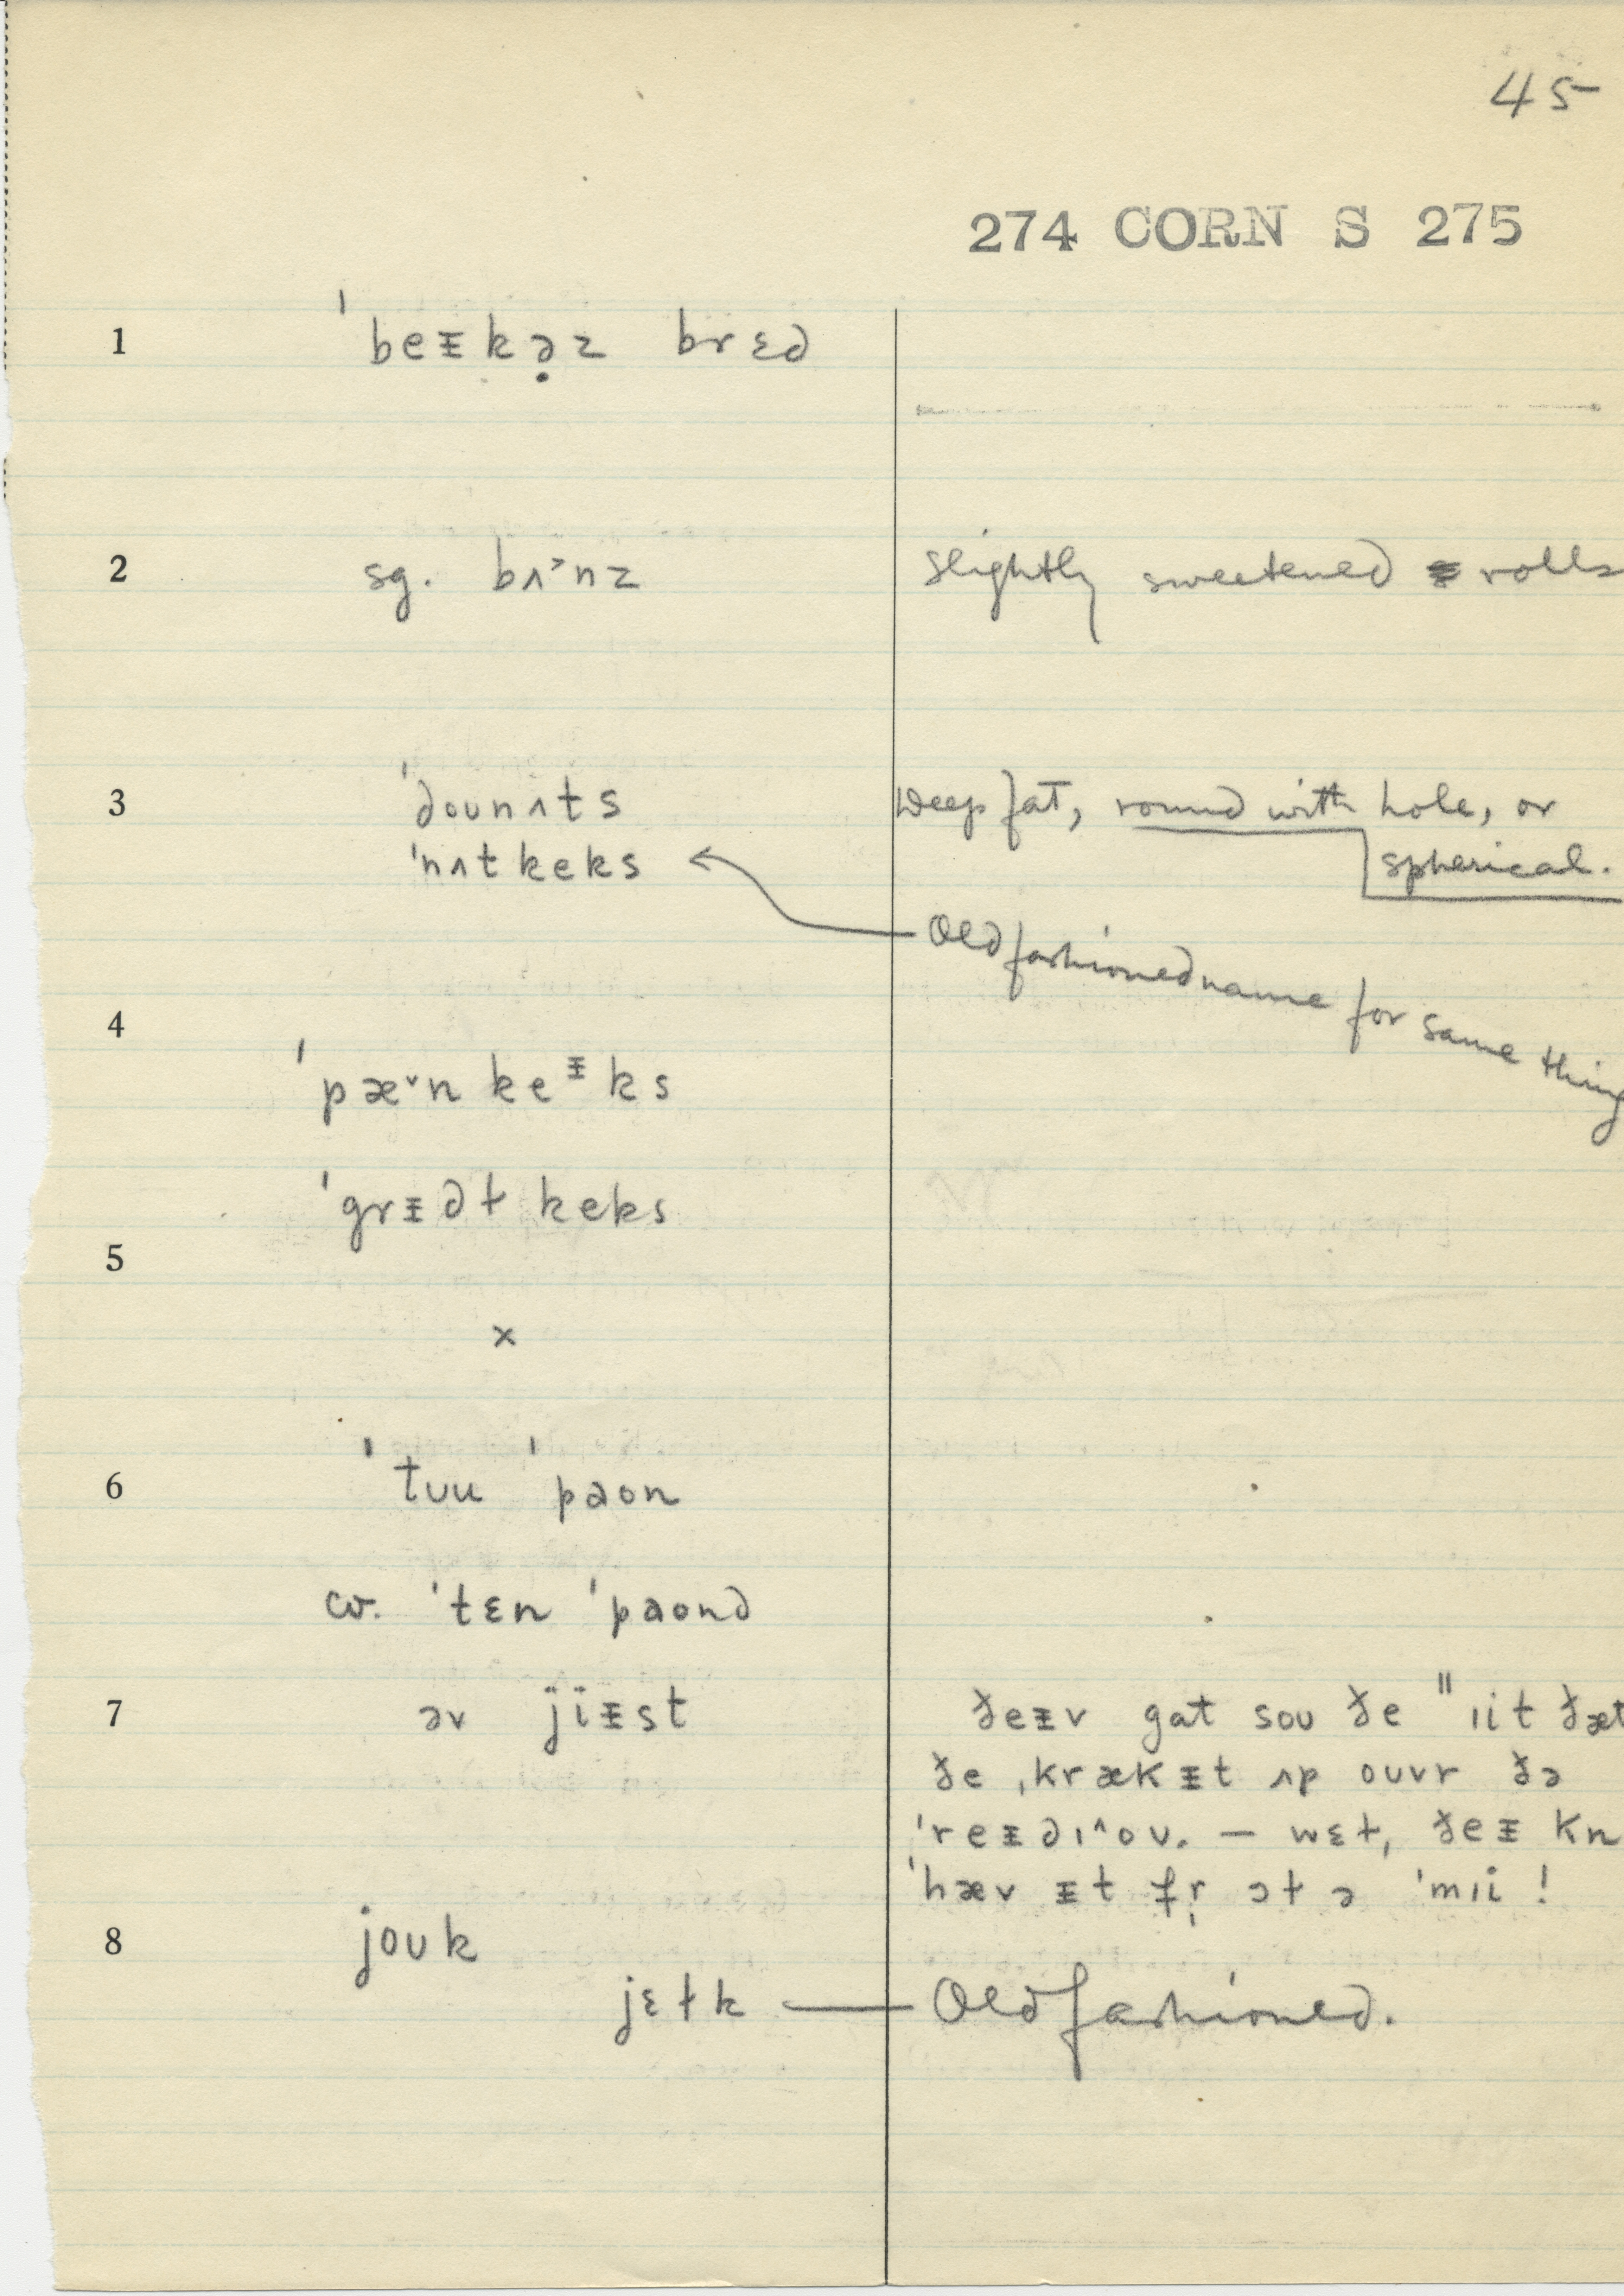 45
274 CORN S 275
1 ˈbeᵻkə̣z brɛd
2 sg. bʌ˃nz slightly sweetened rolls
3 ˈdounʌts Deep fat, round with hole, or
ˈnʌtkeks spherical.
Old fashioned name for same thing
4
ˈpæ˅nkeᵻks
ˈgrᵻdɫkeks
5
×
6 ˈtʊu ˈpaon
cr. ˈtɛn ˈpaond
7 əv jïᵻst ðeᵻv gat soʊ ðe "ɪit ðæt
ðe ˌkrækᵻt ʌp ouvr ðə
ˈreᵻdɪ^oʊ. — wɛɫ, ðeᵻ kn
ˈhæv ᵻt fr̩ ɔɫ ə ˈmɪi !
8 joʊk
jɛɫk — Old fashioned.